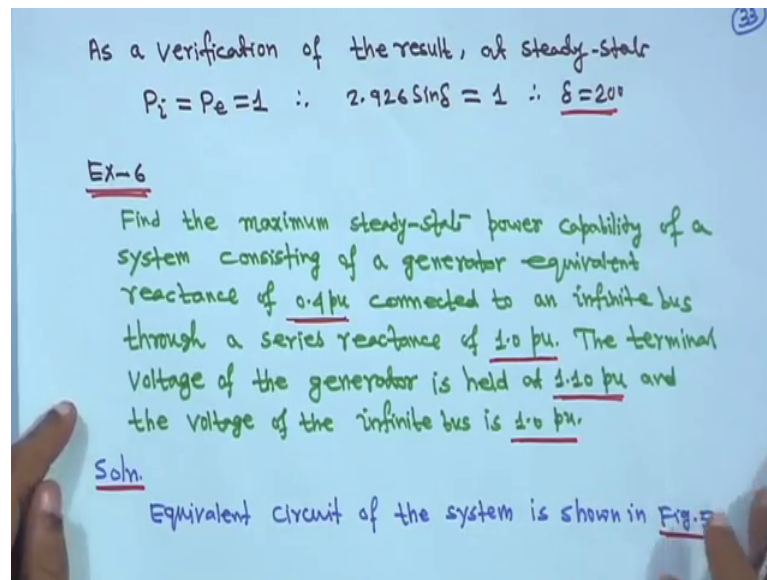 33
As a verification of the result, at steady-state
Pi = Pe = 1 ∴ 2.926 Sinδ = 1 ∴ δ = 20°
EX-6
Find the maximum steady-state power capability of a
system consisting of a generator equivalent
reactance of 0.4 pu connected to an infinite bus
through a series reactance of 1.0 pu. The terminal
voltage of the generator is held at 1.10 pu and
the voltage of the infinite bus is 1.0 pu.
Soln.
Equivalent circuit of the system is shown in Fig.5